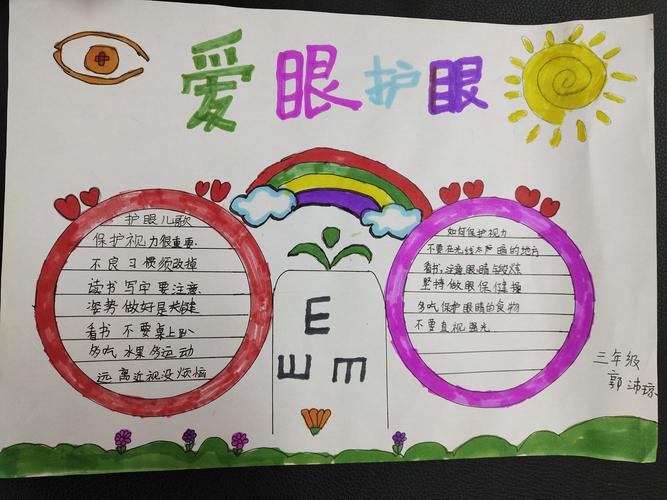 爱眼护眼
护眼儿歌
保护视力很重要
不良习惯须改掉
读书写字要注意
姿势做好是关键
看书不要桌上趴
多吃水果多运动
远离近视没烦恼
E
Ш
m
如何保护视力
不要在光线太声暗的地方
看书,注意眼睛与
坚持做眼保健操
多吃保护眼睛的食物
不要直视强光
三年级
郭沛琼